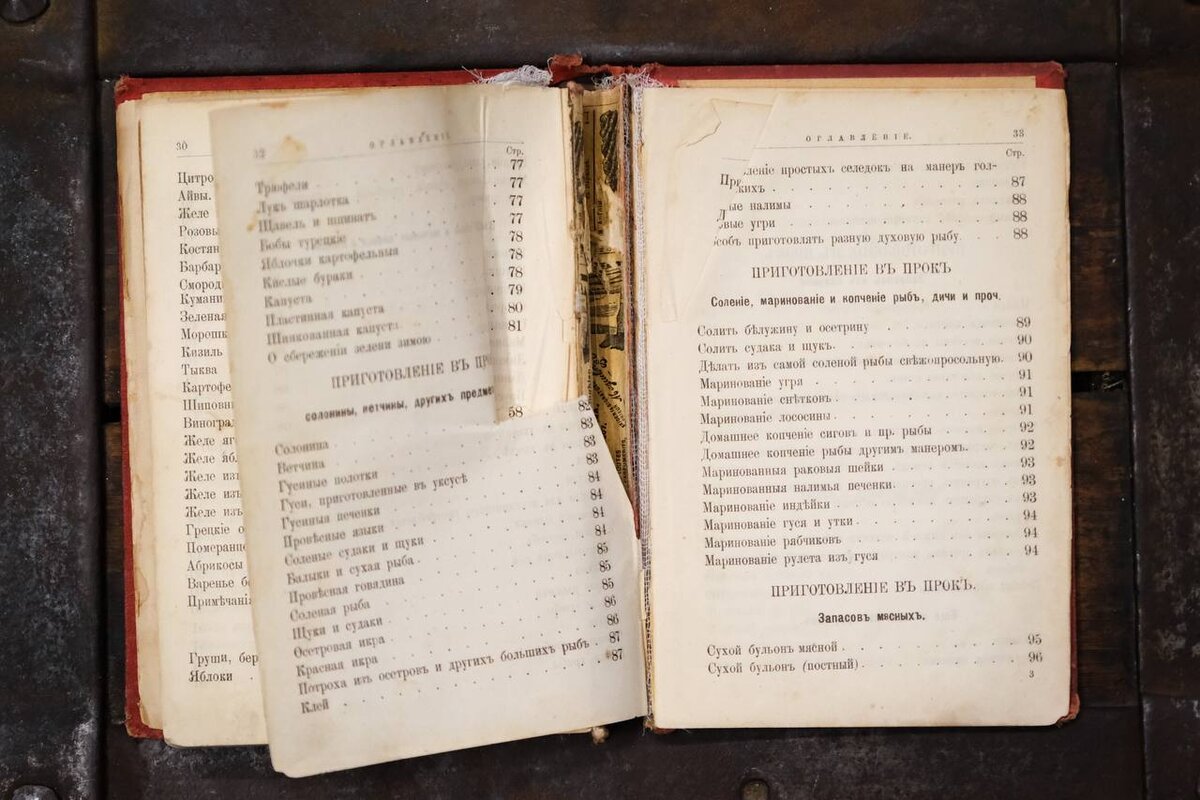 30
Цитро
Айвы.
Желе
Розовы
Костян
Барбар
Смород
Кумани
Зеленая
Морошк
Кизиль
Тыква
Картофе
Шиповн
Виноград
Желе яг
Желе ябл
Желе из
Желе изъ
Желе изъ
Грецкіе о
Померанц
Абрикосы
Варенье бе
Примѣчані
Груши, бер
Яблоки
32 ОГЛАВЛЕНІЕ.
Стр.
Трюфели 77
Лукъ шарлотка 77
Щавель и шпинатъ 77
Бобы турецкіе 77
Яблочки картофельныя 78
Кислые бураки 78
Капуста 78
Пластинная капуста 79
Шинкованная капуста 80
О сбереженіи зелени зимою 81
ПРИГОТОВЛЕНІЕ ВЪ ПРО
солонины, ветчины, другихъ предме
58
Солонина 82
Ветчина 83
Гусиные полотки 83
Гуси, приготовленные въ уксусѣ 83
Гусиныя печенки 84
Провѣсные языки 84
Соленые судаки и щуки 84
Балыки и сухая рыба 84
Провѣсная говядина 85
Соленая рыба 85
Щуки и судаки 85
Осетровая икра 86
Красная икра 86
Потроха изъ осетровъ и другихъ большихъ рыбъ 87
Клей 87
ОГЛАВЛЕНІЕ. 33
Стр.
При леніе простыхъ селедокъ на манеръ гол-
кихъ 87
ые налимы 88
вые угри 88
собъ приготовлять разную духовую рыбу 88
ПРИГОТОВЛЕНІЕ ВЪ ПРОКЪ
Соленіе, маринованіе и копченіе рыбъ, дичи и проч.
Солить бѣлужину и осетрину 89
Солить судака и щукъ. 90
Дѣлать изъ самой соленой рыбы свѣжопросольную. 90
Маринованіе угря 91
Маринованіе снѣтковъ 91
Маринованіе лососины 91
Домашнее копченіе сиговъ и пр. рыбы 92
Домашнее копченіе рыбы другимъ манеромъ. 92
Маринованныя раковыя шейки 93
Маринованныя налимьи печенки 93
Маринованіе индѣйки 93
Маринованіе гуся и утки 94
Маринованіе рябчиковъ 94
Маринованіе рулета изъ гуся 94
ПРИГОТОВЛЕНІЕ ВЪ ПРОКЪ.
Запасовъ мясныхъ.
Сухой бульонъ мясной 95
Сухой бульонъ (постный) 96
3